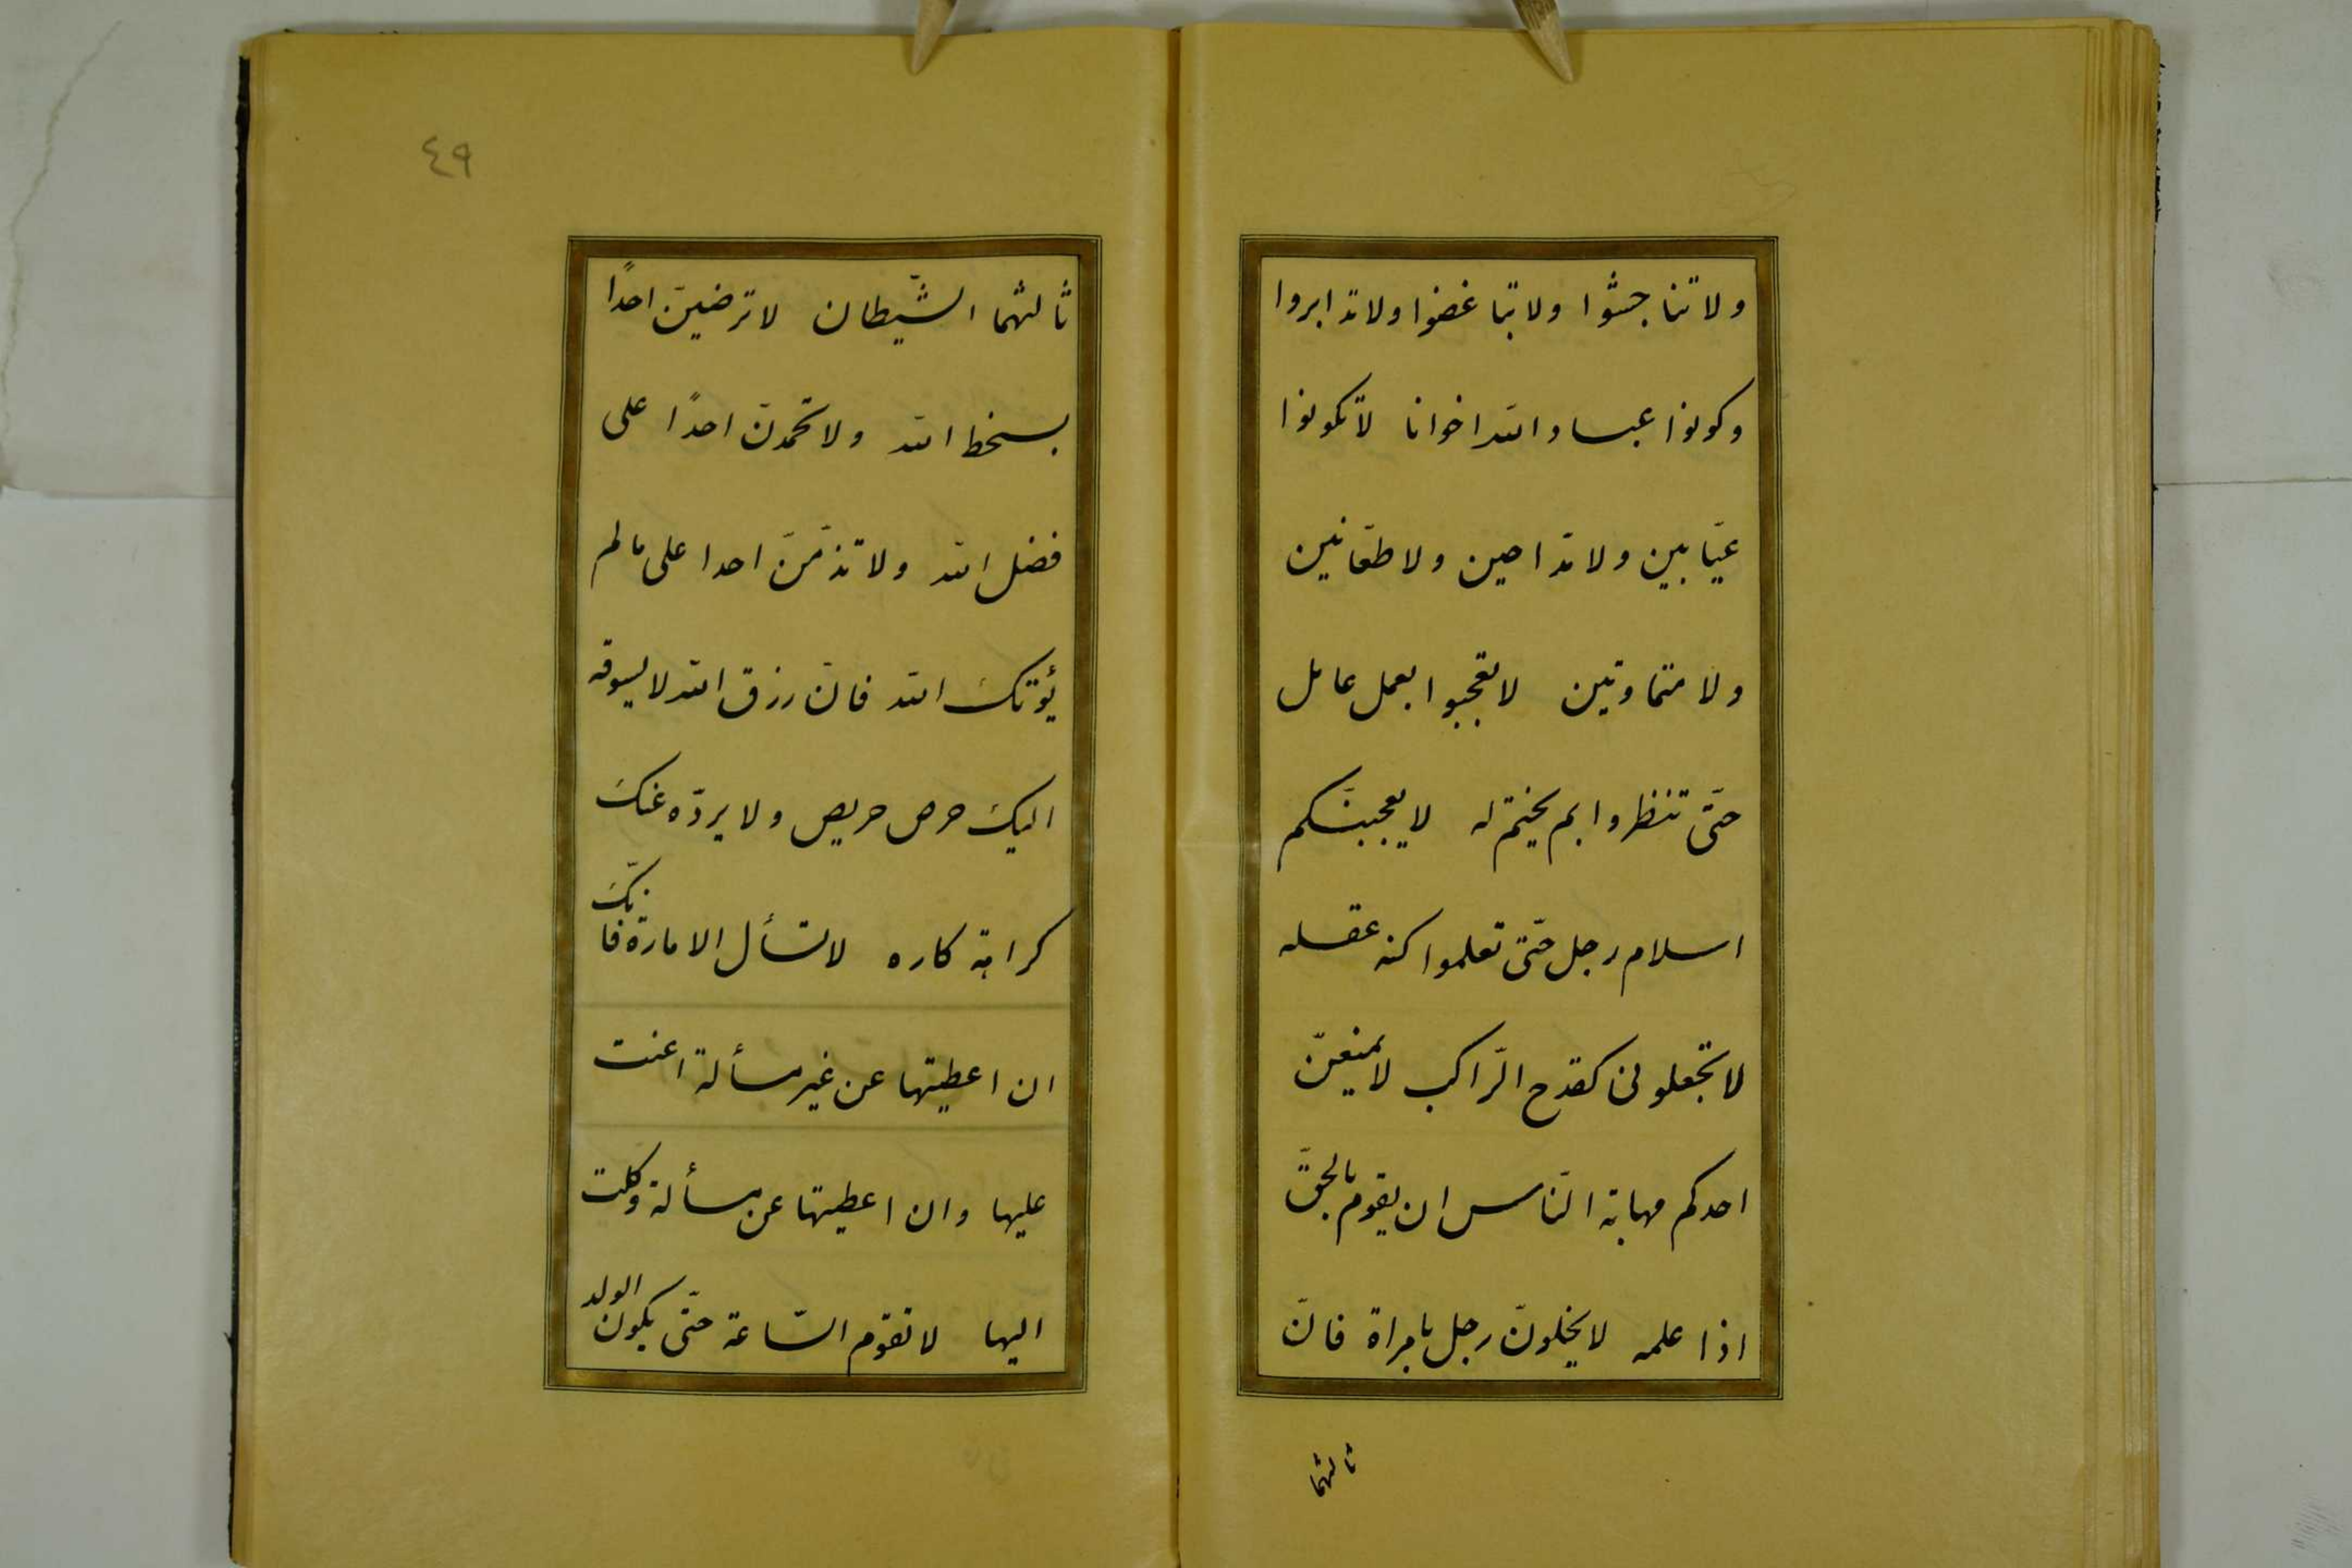 ولا تناجشوا ولا تباغضوا ولا تدابروا
وكونوا عباد الله اخوانا لا تكونوا
عيّابين ولا مدّاحين ولا طعّانين
ولا متماوتين لا تعجبوا بعمل عامل
حتّى تنظروا بم يختم له لا يعجبنّكم
اسلام رجل حتّى تعلموا كنه عقله
لا تجعلونى كقدح الرّاكب لا يمنعنّ
احدكم مهابة النّاس ان يقوم بالحقّ
اذا علمه لا يخلونّ رجل بامراة فانّ
ثالثهما
٤٩
ثالثهما الشّيطان لا ترضينّ احدًا
بسخط الله ولا تحمدنّ احدًا على
فضل الله ولا تذمّنّ احدا على ما لم
يؤتك الله فانّ رزق الله لا يسوقه
اليك حرص حريص ولا يردّه عنك
كراهة كاره لا تسأل الامارة فانّك
ان اعطيتها عن غير مسألة اعنت
عليها وان اعطيتها عن مسألة وكلت
اليها لا تقوم السّاعة حتّى يكون الولد